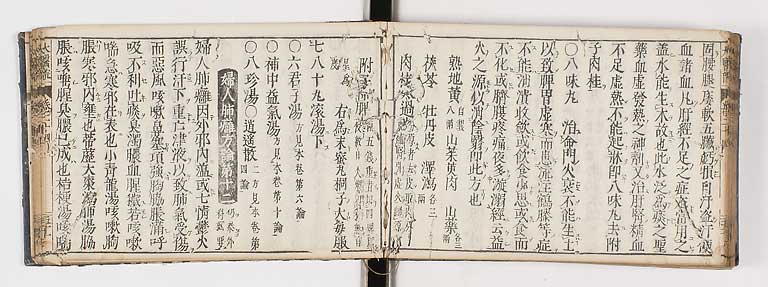 因腰腿痿軟五臟虧損自汗盜汗便
血諸血凡肝經不足之症尤當用之
蓋水能生木故也此水泛爲痰之聖
藥血虛發熱之神劑又治肝腎精血
不足虛熱不能起牀即八味丸去附
子肉桂
○八味丸 治命門火衰不能生土
以致脾胃虛寒而患流注鶴膝等症
不能消潰收斂或飲食少思或食而
不化臍腹疼痛夜多漩溺經云益
火之源以消陰翳即此方也
熟地黄 山茱萸肉 山藥
茯苓 牡丹皮 澤瀉
肉桂
附子
右爲末蜜丸桐子大每服
七八十丸滾湯下
○六君子湯 方見本卷第六論
○補中益氣湯 方見本卷第十論
○八珍湯○逍遥散 二方見本卷第四論
婦人肺癰方論第十二
婦人肺癰因外邪内蘊或七情鬱火
誤行汗下重亡津液以致肺氣受傷
而惡風咳嗽鼻塞項強胸脇脹滿呼
吸不利吐痰臭濁膿血腥穢若咳嗽
喘急寒邪在表也小青龍湯咳嗽胸
脹寒邪内壅也葶藶大棗瀉肺湯胸
脹咳唾腥臭膿已成也桔梗湯咳喘